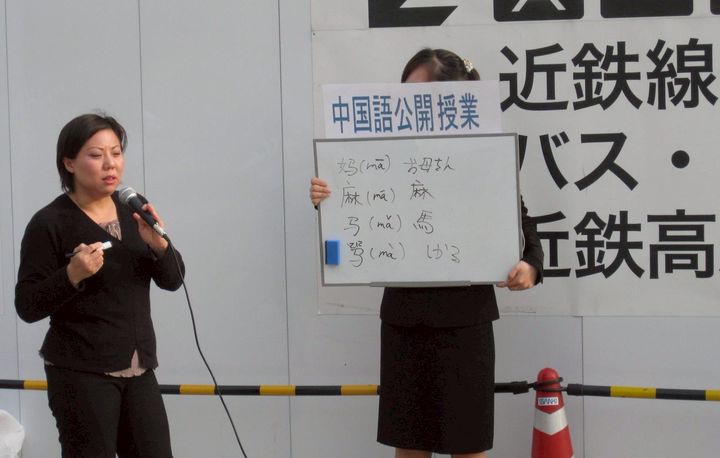 中国語公開授業
妈(mā) お母ちん
麻(má) 麻
马(mǎ) 馬
骂(mà) しかる
近鉄線
バス・
近鉄高